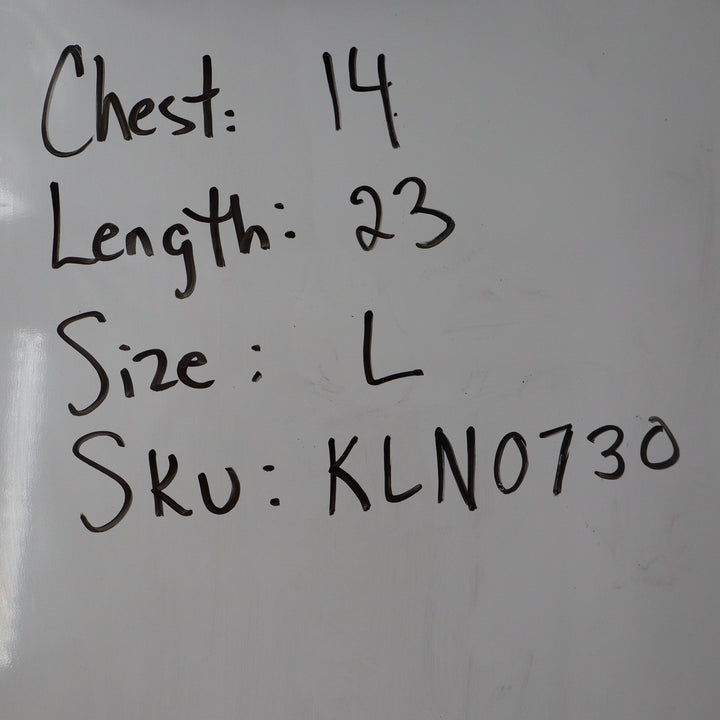 Chest: 14
Length: 23
Size: L
SKU: KLN0730